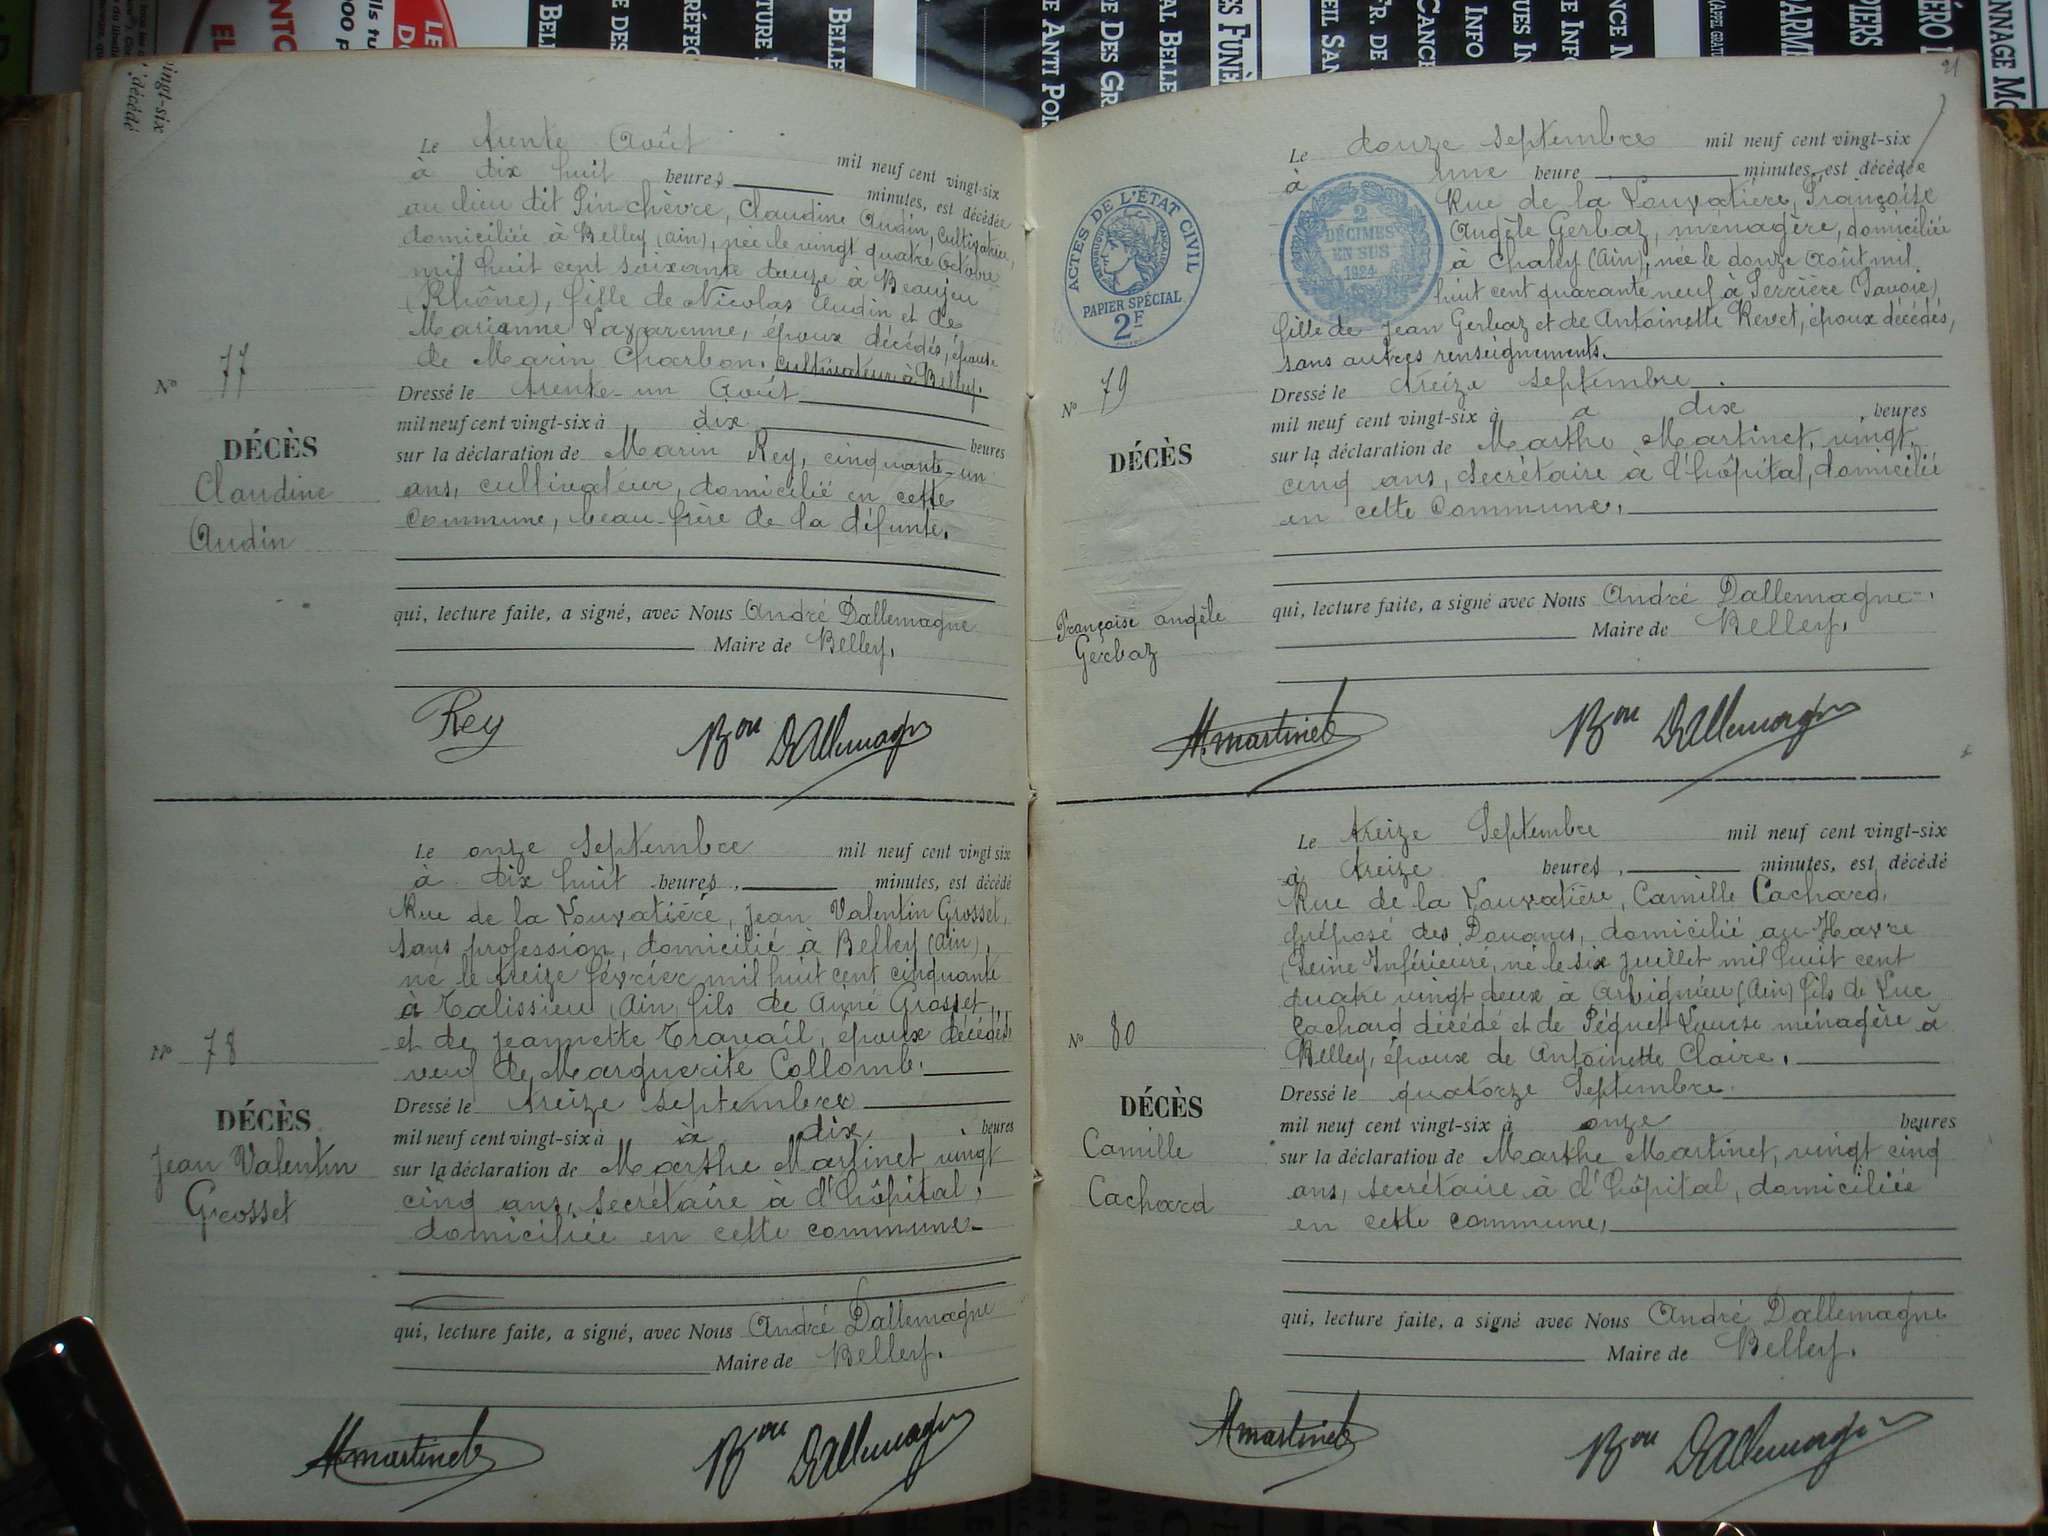 Le trente Août mil neuf cent vingt-six
à dix huit heures minutes, est décédée
au lieu dit Pin chèvre, Claudine Audin, cultivatrice,
domiciliée à Belley (Ain), née le vingt quatre Octobre
mil huit cent soixante douze à Beaujeu
(Rhône), fille de Nicolas Audin et de
Marianne Lavarenne, époux décédés, épouse
de Marin Charbon. cultivateur à Belley.
Nº 77
Dressé le trente-un Août
mil neuf cent vingt-six à dix heures
DÉCÈS
Claudine
Audin
sur la déclaration de Marin Rey, cinquante-un
ans, cultivateur, domicilié en cette
commune, beau-frère de la défunte.
qui, lecture faite, a signé, avec Nous André Dallemagne
Maire de Belley.
Rey
Bon Dallemagne
Le onze septembre mil neuf cent vingt six
à dix huit heures, minutes, est décédé
Rue de la Louvatière, Jean Valentin Grosset,
sans profession, domicilié à Belley (Ain),
né le treize février mil huit cent cinquante
à Talissieu (Ain, fils de Aimé Grosset,
et de Jeannette Travail, époux décédés
veuf de Marguerite Collomb.
Nº 78
Dressé le treize septembre
mil neuf cent vingt-six à à dix heures
DÉCÈS
Jean Valentin
Grosset
sur la déclaration de Marthe Martinet vingt
cinq ans, secrétaire à l'hôpital,
domiciliée en cette commune-
qui, lecture faite, a signé, avec Nous André Dallemagne
Maire de Belley.
M martinet
Bon Dallemagne
21
Le douze septembre mil neuf cent vingt-six
à une heure minutes, est décédée
Rue de la Louvatière, Françoise
Angèle Gerbaz, ménagère, domiciliée
à Chaley (Ain), née le douze Août mil
huit cent quarante neuf à Serrière (Savoie)
fille de Jean Gerbaz et de Antoinette Revet, époux décédés,
sans autres renseignements.
ACTES DE L'ÉTAT CIVIL
RÉPUBLIQUE FRANÇAISE
PAPIER SPÉCIAL
2F
2
DÉCIMES
EN SUS
1924
Nº 79
Dressé le treize septembre
mil neuf cent vingt-six à a dix, heures
DÉCÈS
Françoise Angèle
Gerbaz
sur la déclaration de Marthe Martinet, vingt
cinq ans, secrétaire à l'hôpital, domicilié
en cette commune,
qui, lecture faite, a signé, avec Nous André Dallemagne
Maire de Belley.
M. martinet
Bon Dallemagne
Le treize Septembre mil neuf cent vingt-six
à treize heures, minutes, est décédé
Rue de la Louvatière, Camille Cachard,
préposé des Douanes, domicilié au Havre
(Seine Inférieure, né le six juillet mil huit cent
quatre vingt deux à Arbignieu (Ain) fils de Luc
Cachard décédé et de Péquet Louise ménagère à
Belley, époux de Antoinette Claire.
Nº 80
Dressé le quatorze Septembre.
mil neuf cent vingt-six à onze heures
DÉCÈS
Camille
Cachard
sur la déclaration de Marthe Martinet, vingt cinq
ans, secrétaire à l'hôpital, domiciliée
en cette commune,
qui, lecture faite, a signé avec Nous André Dallemagne
Maire de Belley.
M martinet
Bon Dallemagne